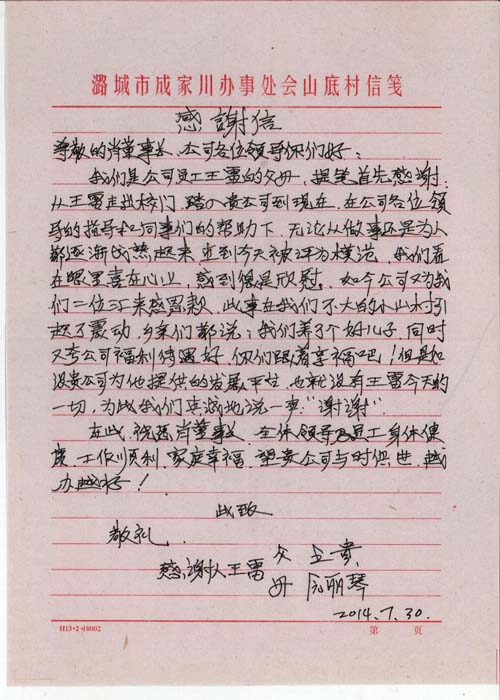 潞城市成家川办事处会山底村信笺
感謝信
尊敬的肖董事长、公司各位领导你们好：
我们是公司员工王雷的父母，提笔首先感谢：
从王雷走出校门，踏入贵公司到现在，在公司各位领
导的指导和同事们的帮助下，无论从做事还是为人
都逐渐成熟起来，直到今天被评为模范，我们看
在眼里喜在心上，感到很是欣慰。如今公司又为我
们二位汇来感恩款，此事在我们不大的小山村引
起了震动，乡亲们都说：我们养了个好儿子，同时
又夸公司福利待遇好，你们跟着享福吧！但是如
没贵公司为他提供的发展平台，也就没有王雷今天的
一切，为此我们真诚地说一声“谢谢”。
在此，祝愿肖董事长、全体领导及员工身体健
康、工作顺利、家庭幸福，望贵公司与时俱进，越
办越好！
此致
敬礼
感谢人王雷 父 王贵
母 丽琴
2014.7.30.
H13·2·18002 第 页